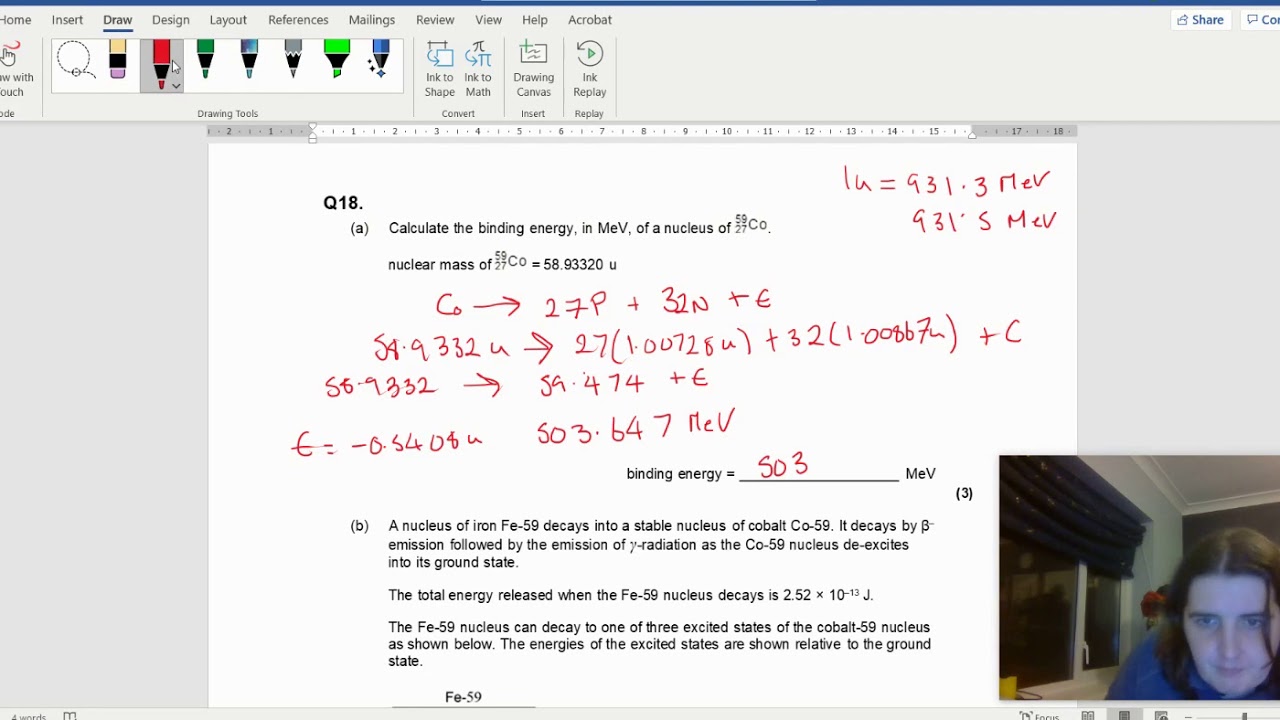 Home Insert Draw Design Layout References Mailings Review View Help Acrobat
Share
Ink to Shape
Ink to Math
Drawing Canvas
Ink Replay
Drawing Tools
Convert
Insert
Replay
2 1 1 2 3 4 5 6 7 8 9 10 11 12 13 14 15 17 18
1u = 931.3 MeV
931.5 MeV
Q18.
(a) Calculate the binding energy, in MeV, of a nucleus of ⁵⁹₂₇Co.
nuclear mass of ⁵⁹₂₇Co = 58.93320 u
Co → 27P + 32N + E
58.9332 u → 27(1.00728u) + 32(1.00867u) + E
58.9332 → 59.474 + E
E = -0.5408u 503.647 MeV
binding energy = 503 MeV
(3)
(b) A nucleus of iron Fe-59 decays into a stable nucleus of cobalt Co-59. It decays by β⁻
emission followed by the emission of γ-radiation as the Co-59 nucleus de-excites
into its ground state.
The total energy released when the Fe-59 nucleus decays is 2.52 × 10⁻¹³ J.
The Fe-59 nucleus can decay to one of three excited states of the cobalt-59 nucleus
as shown below. The energies of the excited states are shown relative to the ground
state.
Fe-59
4 words
Focus